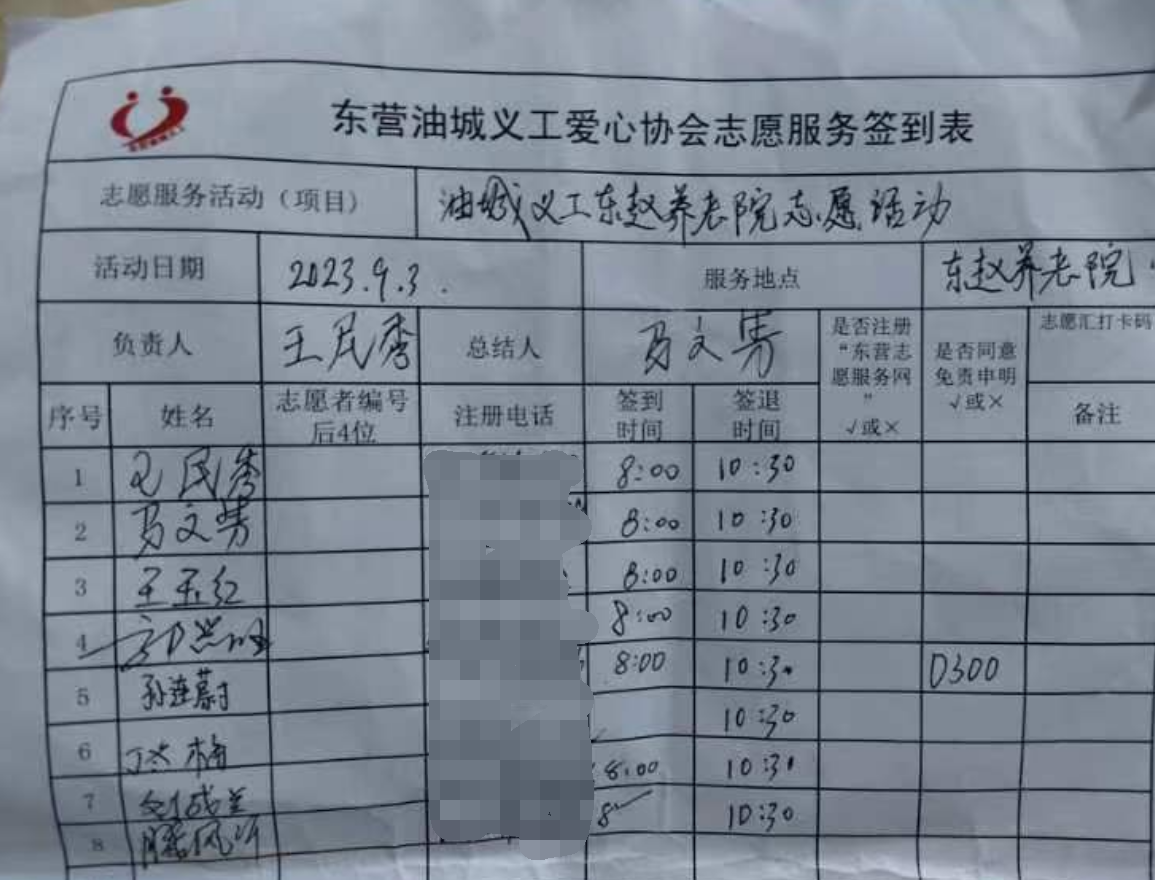 东营油城义工爱心协会志愿服务签到表
志愿服务活动（项目） 油城义工东赵养老院志愿活动
活动日期 2023.9.3. 服务地点 东赵养老院
负责人 王民秀 总结人 马文隽 是否注册“东营志愿服务网” √或× 是否同意免责申明 √或× 志愿汇打卡码
序号 姓名 志愿者编号后4位 注册电话 签到时间 签退时间 备注
1 王民秀 8:00 10:30
2 马文隽 8:00 10:30
3 王玉红 8:00 10:30
4 8:00 10:30
5 孙连蔚 8:00 10:30 0300
6 梅 10:30
7 8:00 10:30
8 8 10:30